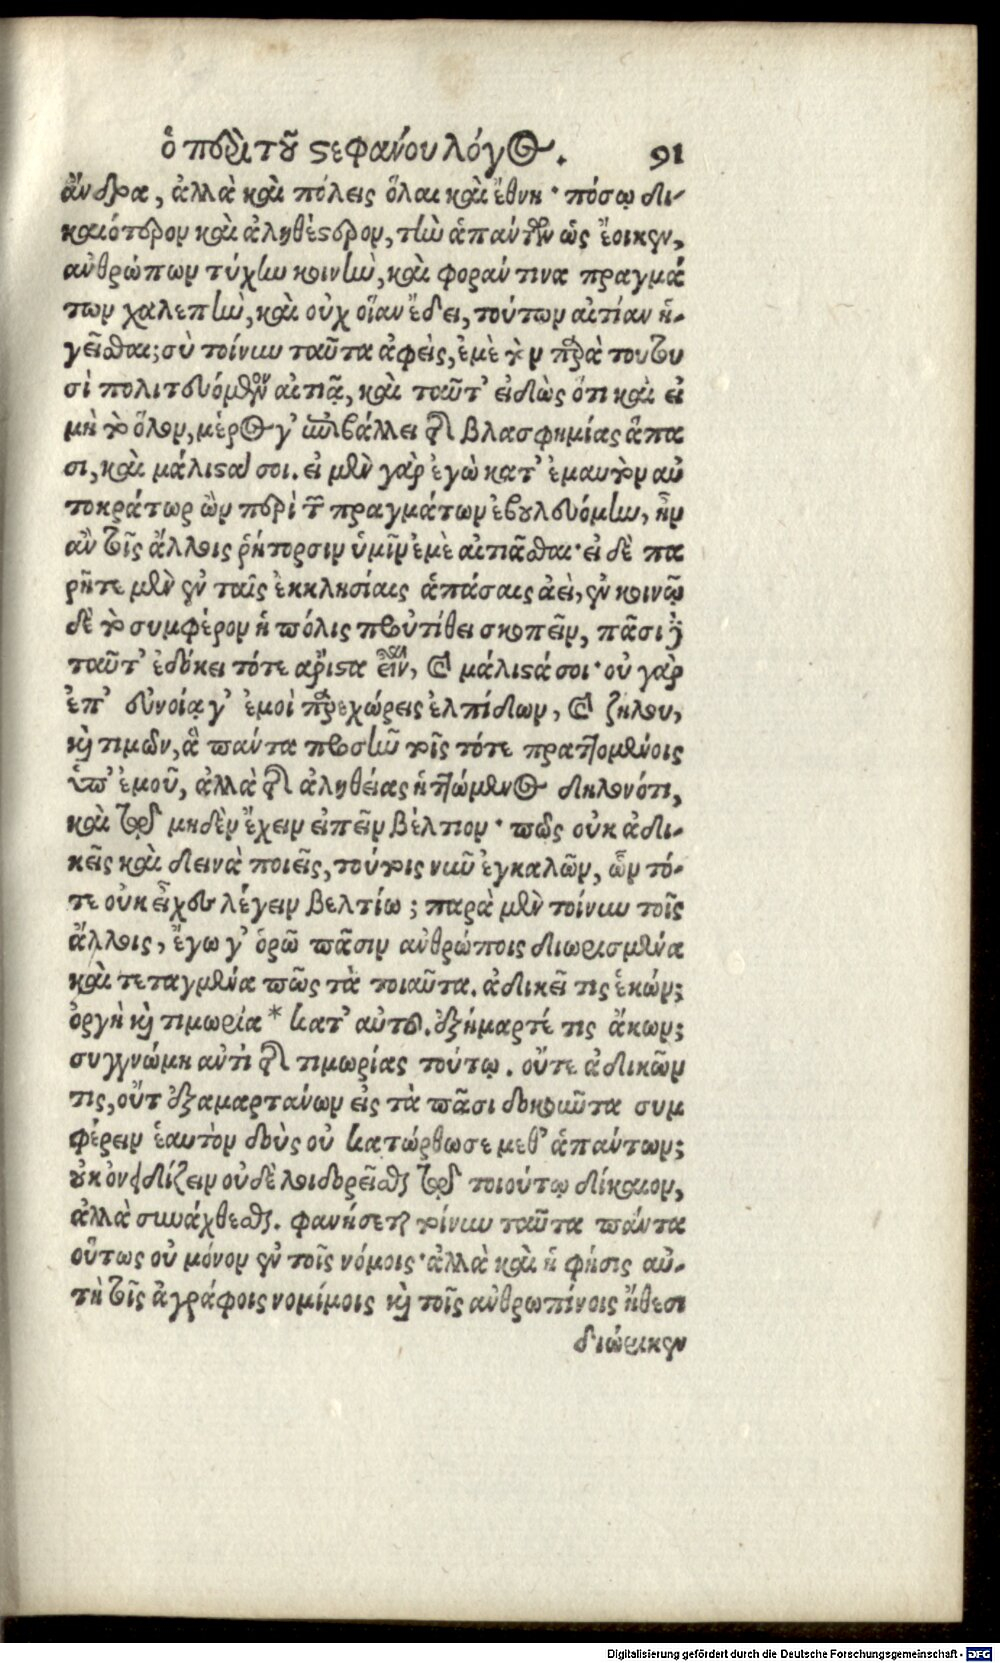 ὁ περὶ τοῦ στεφάνου λόγος. 91
ἄνδρα, ἀλλὰ καὶ πόλεις ὅλαι καὶ ἔθνη· πόσῳ δι-
καιότερον καὶ ἀληθέστερον, τὴν ἁπάντων ὡς ἔοικεν,
ἀνθρώπων τύχην κοινὴν, καὶ φοράν τινα πραγμά
των χαλεπὴν, καὶ οὐχ οἵαν ἔδει, τούτων αἰτίαν ἡ-
γεῖσθαι; σὺ τοίνυν ταῦτα ἀφεὶς, ἐμὲ τὸν παρὰ τουτοι
σὶ πολιτευόμενον αἰτιᾷ, καὶ ταῦτ' εἰδὼς ὅτι καὶ εἰ
μὴ τὸ ὅλον, μέρος γ' ἐπιβάλλει τῆς βλασφημίας ἅπα
σι, καὶ μάλιστα σοι. εἰ μὲν γὰρ ἐγὼ κατ' ἐμαυτὸν αὐ
τοκράτωρ ὢν περὶ τῶν πραγμάτων ἐβουλευόμην, ἦν
ἂν τοῖς ἄλλοις ῥήτορσιν ὑμῖν ἐμὲ αἰτιᾶσθαι· εἰ δὲ πα
ρῆτε μὲν ἐν ταῖς ἐκκλησίαις ἁπάσαις ἀεὶ, ἐν κοινῷ
δὲ τὸ συμφέρον ἡ πόλις προὐτίθει σκοπεῖν, πᾶσι δὲ
ταῦτ' ἐδόκει τότε ἄριστα εἶναι, καὶ μάλιστά σοι· οὐ γὰρ
ἐπ' εὐνοίᾳ γ' ἐμοὶ παρεχώρεις ἐλπίδων, καὶ ζήλου,
καὶ τιμῶν, ἃ πάντα προσῆν τοῖς τότε πραττομένοις
ὑπ' ἐμοῦ, ἀλλὰ τῆς ἀληθείας ἡττώμενος δηλονότι,
καὶ τῷ μηδὲν ἔχειν εἰπεῖν βέλτιον· πῶς οὐκ ἀδι-
κεῖς καὶ δεινὰ ποιεῖς, τούτοις νῦν ἐγκαλῶν, ὧν τό-
τε οὐκ εἶχες λέγειν βελτίω; παρὰ μὲν τοίνυν τοῖς
ἄλλοις, ἔγωγ' ὁρῶ πᾶσιν ἀνθρώποις διωρισμένα
καὶ τεταγμένα πῶς τὰ τοιαῦτα. ἀδικεῖ τις ἑκών;
ὀργὴ καὶ τιμωρία * κατ' αὐτοῦ. ἐξήμαρτέ τις ἄκων;
συγγνώμη ἀντὶ τῆς τιμωρίας τούτῳ. οὔτε ἀδικῶν
τις, οὔτ' ἐξαμαρτάνων εἰς τὰ πᾶσι δοκοῦντα συμ
φέρειν ἑαυτὸν δοὺς οὐ κατώρθωσε μεθ' ἁπάντων;
οὐκ ὀνειδίζειν οὐδὲ λοιδορεῖσθαι τῷ τοιούτῳ δίκαιον,
ἀλλὰ συνάχθεσθαι. φανήσεται τοίνυν ταῦτα πάντα
οὕτως οὐ μόνον ἐν τοῖς νόμοις· ἀλλὰ καὶ ἡ φύσις αὐ-
τὴ τοῖς ἀγράφοις νομίμοις καὶ τοῖς ἀνθρωπίνοις ἤθεσι
διώρικεν
Digitalisierung gefördert durch die Deutsche Forschungsgemeinschaft - DFG